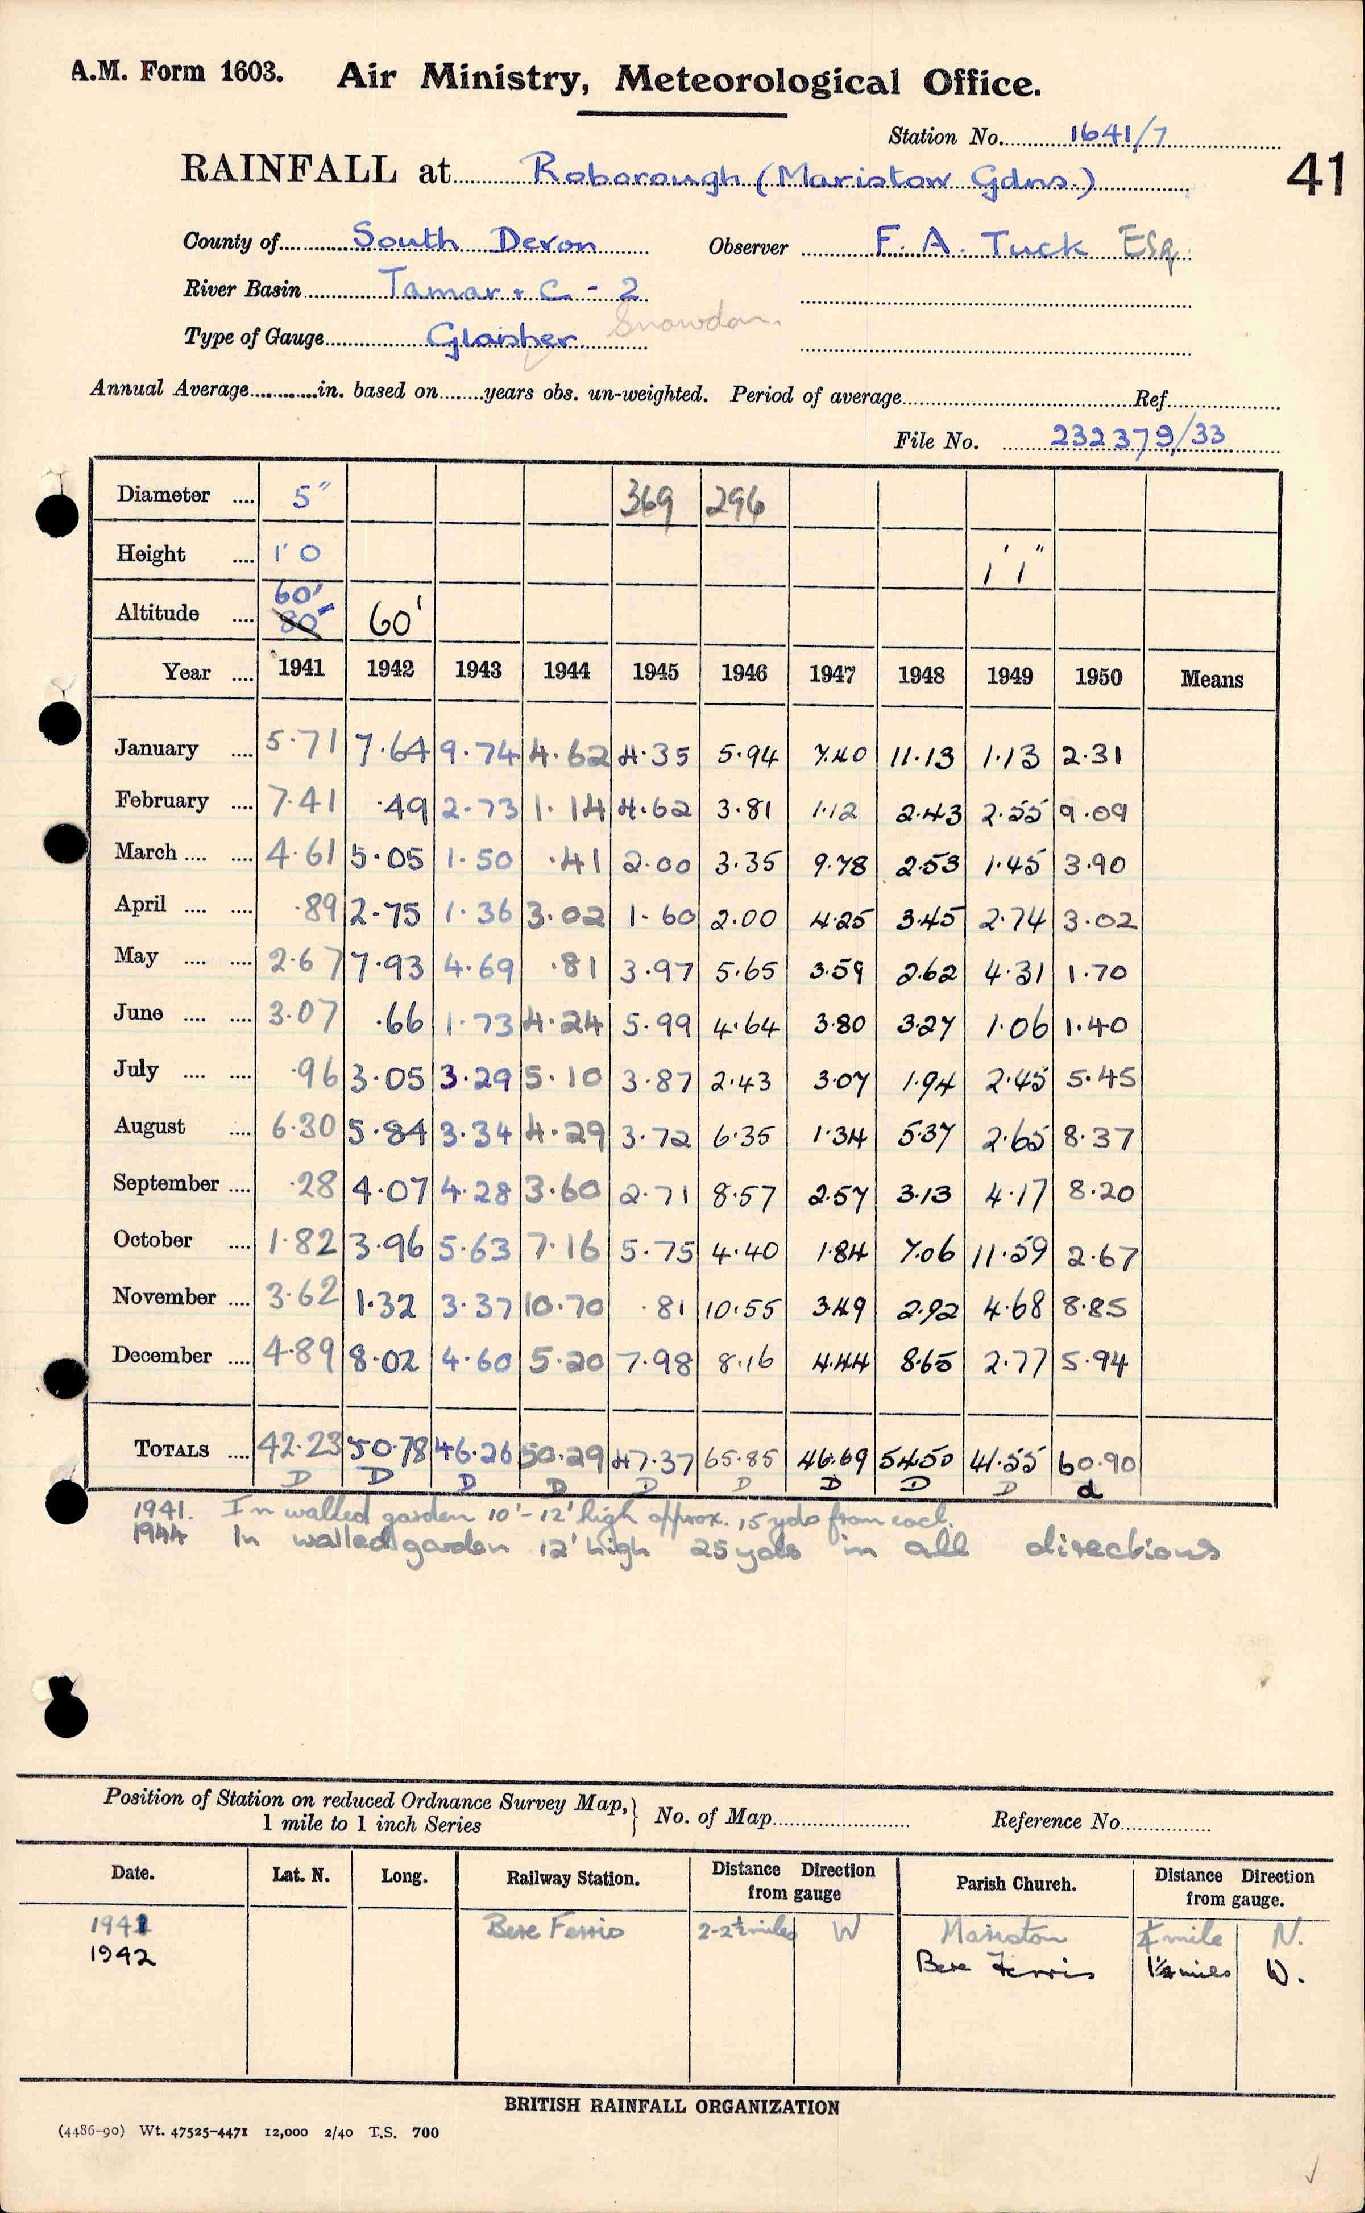 A.M. Form 1603. Air Ministry, Meteorological Office.
Station No. 1641/7
RAINFALL at Roborough (Maristow Gdns.) 41
County of South Devon Observer F. A. Tuck Esq.
River Basin Tamar & C - 2
Type of Gauge Glaisher Snowdon.
Annual Average in. based on years obs. un-weighted. Period of average Ref
File No. 232379/33
Diameter 5" 369 296
Height 1' 0 1' 1"
Altitude 60' 80' 60'
Year 1941 1942 1943 1944 1945 1946 1947 1948 1949 1950 Means
January 5.71 7.64 9.74 4.62 4.35 5.94 7.40 11.13 1.13 2.31
February 7.41 .49 2.73 1.14 4.62 3.81 1.12 2.43 2.55 9.09
March 4.61 5.05 1.50 .41 2.00 3.35 9.78 2.53 1.45 3.90
April .89 2.75 1.36 3.02 1.60 2.00 4.25 3.45 2.74 3.02
May 2.67 7.93 4.69 .81 3.97 5.65 3.59 2.62 4.31 1.70
June 3.07 .66 1.73 4.24 5.99 4.64 3.80 3.27 1.06 1.40
July .96 3.05 3.29 5.10 3.87 2.43 3.07 1.94 2.45 5.45
August 6.30 5.84 3.34 4.29 3.72 6.35 1.34 5.37 2.65 8.37
September .28 4.07 4.28 3.60 2.71 8.57 2.57 3.13 4.17 8.20
October 1.82 3.96 5.63 7.16 5.75 4.40 1.84 7.06 11.59 2.67
November 3.62 1.32 3.37 10.70 .81 10.55 3.49 2.92 4.68 8.85
December 4.89 8.02 4.60 5.20 7.98 8.16 4.44 8.65 2.77 5.94
TOTALS 42.23 50.78 46.26 50.29 47.37 65.85 46.69 54.50 41.55 60.90
D D D D D D D D D d
1941. In walled garden 10'-12' high approx. 15 yds from each.
1944 In walled garden 12' high 25 yds in all directions
Position of Station on reduced Ordnance Survey Map, 1 mile to 1 inch Series } No. of Map Reference No
Date. Lat. N. Long. Railway Station. Distance Direction from gauge Parish Church. Distance Direction from gauge.
1941 Bere Ferris 2-2½ miles W Maristow ¼ mile N.
1942 Bere Ferris 1¼ miles W.
BRITISH RAINFALL ORGANIZATION
(4486-90) Wt. 47525-4471 12,000 2/40 T.S. 700